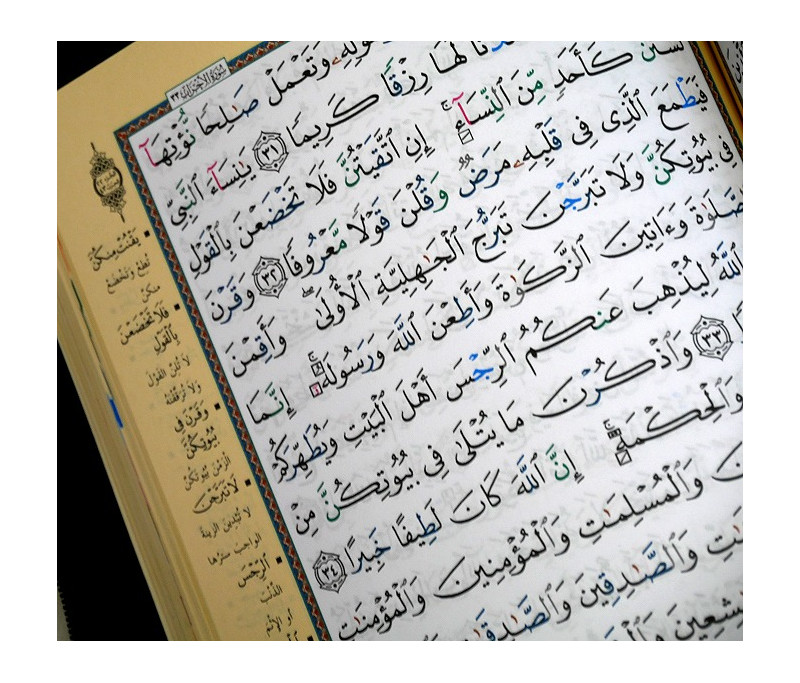 سُورَةُ الأَحْزَابِ ٣٣
وَتَعْمَلْ صَـٰلِحًا نُّؤْتِهَآ
لَهَا رِزْقًا كَرِيمًا ٣١ يَـٰنِسَآءَ ٱلنَّبِىِّ
كَأَحَدٍ مِّنَ ٱلنِّسَآءِ إِنِ ٱتَّقَيْتُنَّ فَلَا تَخْضَعْنَ بِٱلْقَوْلِ
فَيَطْمَعَ ٱلَّذِى فِى قَلْبِهِۦ مَرَضٌ وَقُلْنَ قَوْلًا مَّعْرُوفًا ٣٢ وَقَرْنَ
فِى بُيُوتِكُنَّ وَلَا تَبَرَّجْنَ تَبَرُّجَ ٱلْجَـٰهِلِيَّةِ ٱلْأُولَىٰ وَأَقِمْنَ
ٱلصَّلَوٰةَ وَءَاتِينَ ٱلزَّكَوٰةَ وَأَطِعْنَ ٱللَّهَ وَرَسُولَهُۥ إِنَّمَا
ٱللَّهُ لِيُذْهِبَ عَنكُمُ ٱلرِّجْسَ أَهْلَ ٱلْبَيْتِ وَيُطَهِّرَكُمْ
٣٣ وَٱذْكُرْنَ مَا يُتْلَىٰ فِى بُيُوتِكُنَّ مِنْ
وَٱلْحِكْمَةِ إِنَّ ٱللَّهَ كَانَ لَطِيفًا خَبِيرًا ٣٤
وَٱلْمُسْلِمَـٰتِ وَٱلْمُؤْمِنِينَ وَٱلْمُؤْمِنَـٰتِ
وَٱلصَّـٰدِقِينَ
يَقْنُتْ مِنكُنَّ
تُطِعْ وَتَخْضَعْ
مِنكُنَّ
فَلَا تَخْضَعْنَ
بِالْقَوْلِ
لَا تُلِنَّ القَوْلَ
وَلَا تُرَقِّقْنَهُ
وَقَرْنَ فِى
بُيُوتِكُنَّ
الْزَمْنَ بُيُوتَكُنَّ
لَا تَبَرَّجْنَ
لَا تُبْدِينَ الزِّينَةَ
الوَاجِبَ سَتْرُهَا
الرِّجْسَ
الذَّنْبَ
أَوِ الإِثْمَ